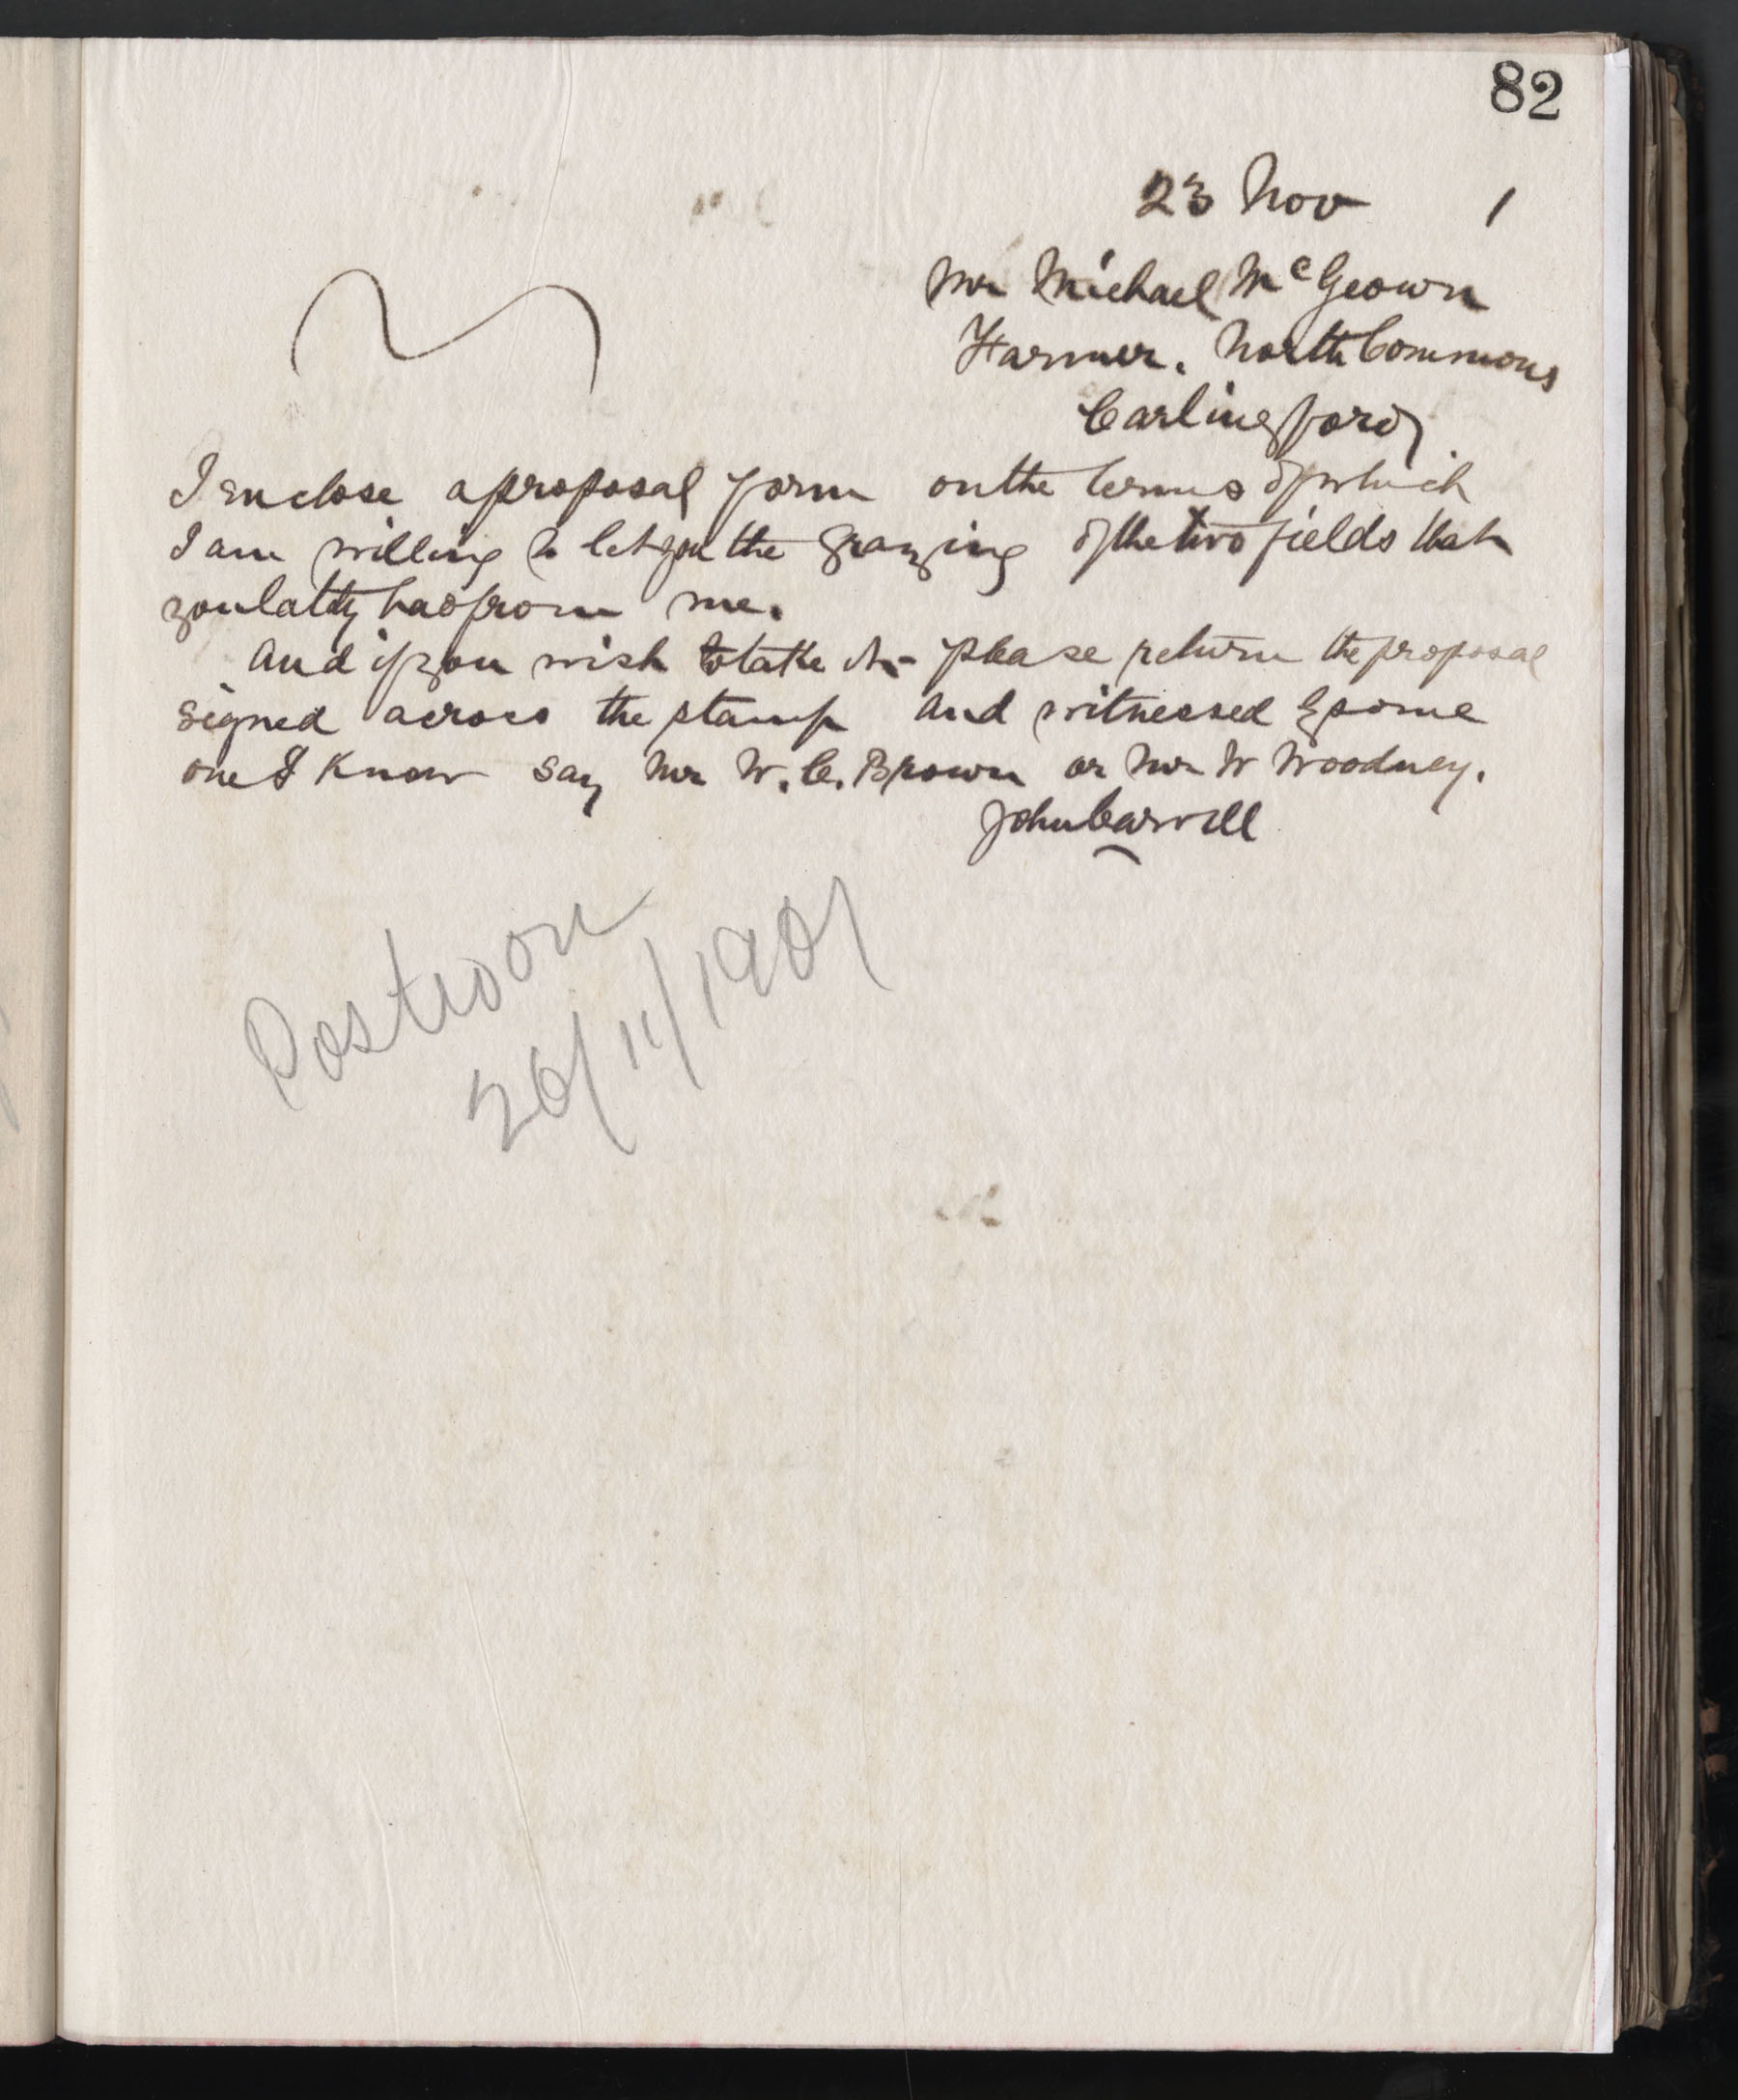 82
23 Nov 1
Mr Michael McGeown
Farmer. North Commons
Carlingford
I enclose a proposal form on the terms of which
I am willing to let you the grazing of the two fields that
you lately had from me.
And if you wish to take it - please return the proposal
signed across the stamp and witnessed by some
one I know say Mr W. C. Brown or Mr W Woodney.
John Carvill
26/11/1901